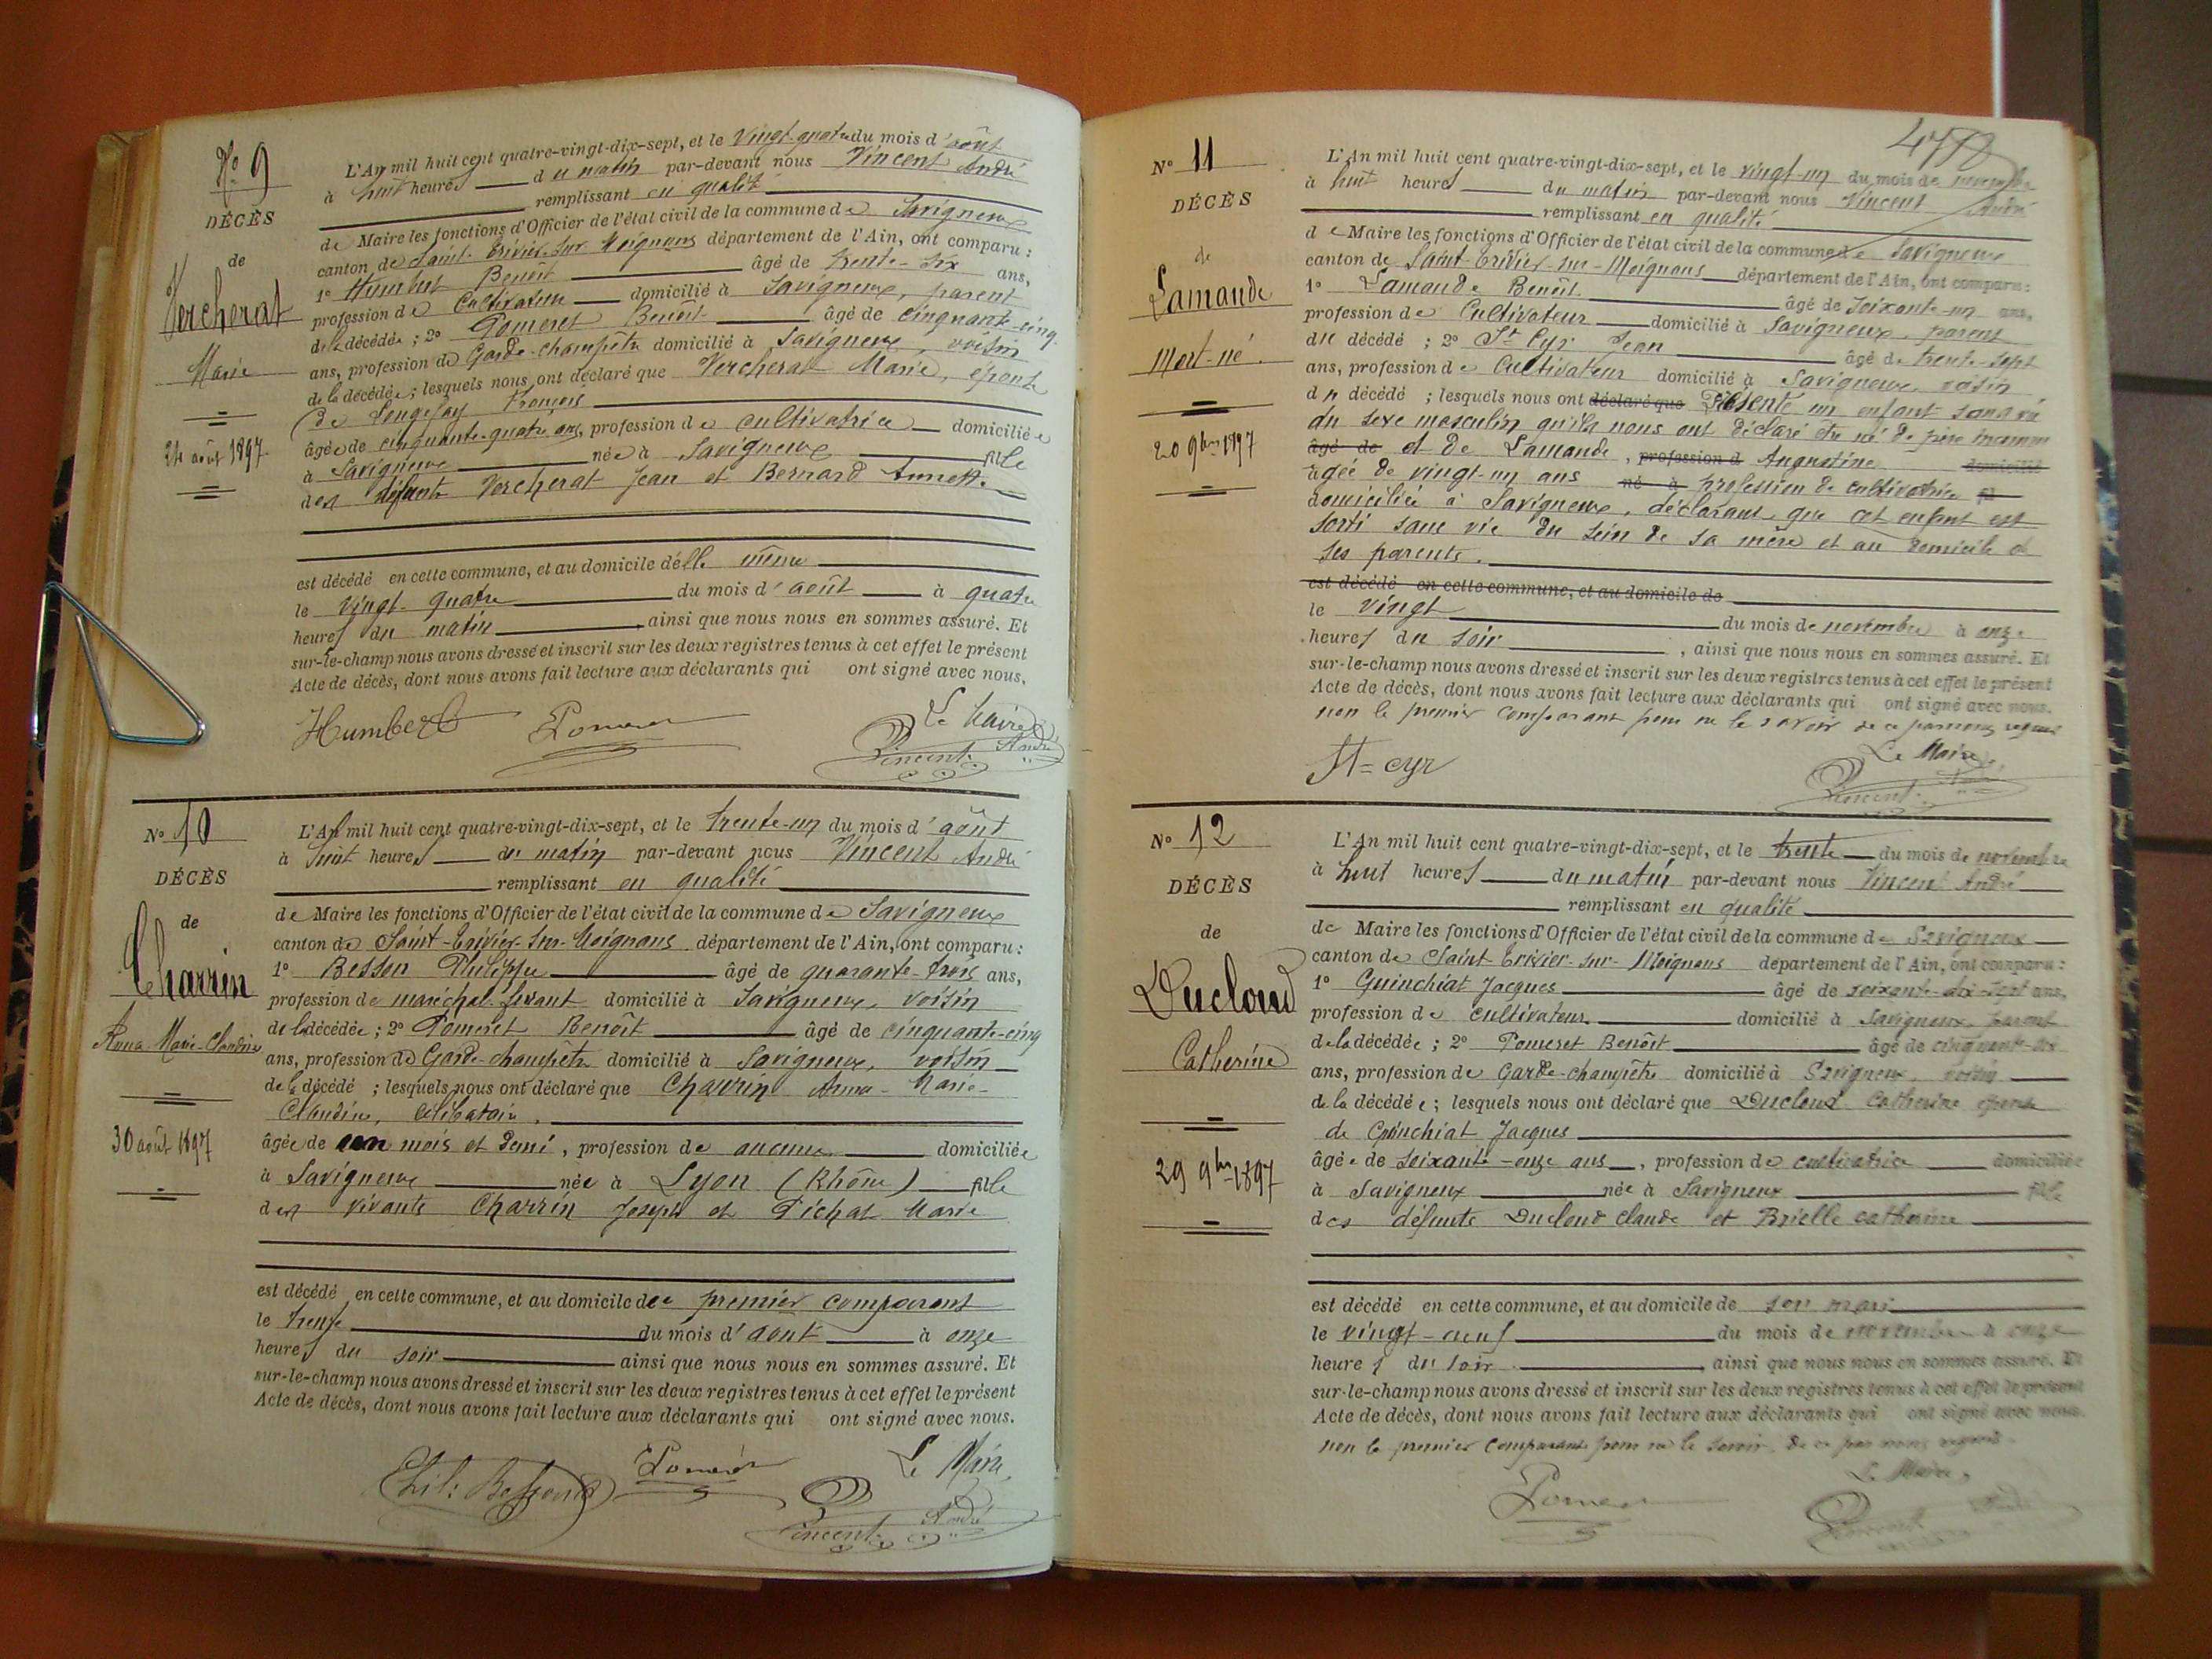 No 9
DÉCÈS
de
Vercherat
Marie
24 août 1897
L'An mil huit cent quatre-vingt-dix-sept, et le vingt-quatre du mois d'août
à huit heures du matin par-devant nous Vincent André
remplissant en qualité
de Maire les fonctions d'Officier de l'état civil de la commune de Savigneux
canton de Saint-Trivier-sur-Moignans département de l'Ain, ont comparu :
1º Humbert Benoit âgé de trente-six ans,
profession de Cultivateur domicilié à Savigneux, parent
de la décédée ; 2º Pomeret Benoît âgé de cinquante-cinq
ans, profession de Garde-champêtre domicilié à Savigneux, voisin
de la décédée ; lesquels nous ont déclaré que Vercherat Marie, épouse
de François
âgée de cinquante-quatre ans, profession de cultivatrice domiciliée
à Savigneux née à Savigneux fille
des défunts Vercherat Jean et Bernard Annette
est décédé en cette commune, et au domicile d'elle même
le vingt-quatre du mois d'août à quatre
heures du matin ainsi que nous nous en sommes assuré. Et
sur-le-champ nous avons dressé et inscrit sur les deux registres tenus à cet effet le présent
Acte de décès, dont nous avons fait lecture aux déclarants qui ont signé avec nous.
Humbert Pomeret Le Maire
Vincent André
No 10
DÉCÈS
de
Charrin
Anna-Marie-Claudine
30 août 1897
L'An mil huit cent quatre-vingt-dix-sept, et le trente-un du mois d'août
à huit heures du matin par-devant nous Vincent André
remplissant en qualité
de Maire les fonctions d'Officier de l'état civil de la commune de Savigneux
canton de Saint-Trivier-sur-Moignans département de l'Ain, ont comparu :
1º Besson Philippe âgé de quarante-trois ans,
profession de maréchal-ferrant domicilié à Savigneux, voisin
de la décédée ; 2º Pomeret Benoît âgé de cinquante-cinq
ans, profession de Garde-champêtre domicilié à Savigneux, voisin
de la décédé ; lesquels nous ont déclaré que Charrin Anna-Marie-
Claudine, célibataire,
âgée de un mois et demi, profession de aucune domiciliée
à Savigneux née à Lyon (Rhône) fille
des vivants Charrin Joseph et Pichat Marie
est décédé en cette commune, et au domicile de premier comparant
le trente du mois d'août à onze
heures du soir ainsi que nous nous en sommes assuré. Et
sur-le-champ nous avons dressé et inscrit sur les deux registres tenus à cet effet le présent
Acte de décès, dont nous avons fait lecture aux déclarants qui ont signé avec nous.
Phil: Besson Pomeret Le Maire,
Vincent André
No 11
DÉCÈS
de
Lamande
Mort-né.
20 9bre 1897
L'An mil huit cent quatre-vingt-dix-sept, et le vingt-un du mois de novembre
à huit heures du matin par-devant nous Vincent André
remplissant en qualité
de Maire les fonctions d'Officier de l'état civil de la commune de Savigneux
canton de Saint-Trivier-sur-Moignans département de l'Ain, ont comparu :
1º Lamande Benoît âgé de soixante-un ans,
profession de Cultivateur domicilié à Savigneux, parent
du décédé ; 2º St Cyr Jean âgé de trente-sept
ans, profession de Cultivateur domicilié à Savigneux, voisin
du décédé ; lesquels nous ont déclaré que Présenté un enfant sans vie
du sexe masculin qu'ils nous ont déclaré être né de père inconnu
âgé de et de Lamande, profession d Augustine domicilié
âgée de vingt-un ans né à profession de cultivatrice fil
domiciliée à Savigneux, déclarant que cet enfant est
sorti sans vie du sein de sa mère et au domicile de
ses parents.
est décédé en cette commune, et au domicile de
le vingt du mois de novembre à onze
heures du soir, ainsi que nous nous en sommes assuré. Et
sur-le-champ nous avons dressé et inscrit sur les deux registres tenus à cet effet le présent
Acte de décès, dont nous avons fait lecture aux déclarants qui ont signé avec nous.
non le premier comparant pour ne le savoir de ce par nous requis
St=cyr Le Maire,
Vincent
No 12
DÉCÈS
de
Ducloud
Catherine
29 9bre 1897
L'An mil huit cent quatre-vingt-dix-sept, et le trente du mois de novembre
à huit heures du matin par-devant nous Vincent André
remplissant en qualité
de Maire les fonctions d'Officier de l'état civil de la commune de Savigneux
canton de Saint-Trivier-sur-Moignans département de l'Ain, ont comparu :
1º Guinchiat Jacques âgé de soixante-dix-sept ans,
profession de cultivateur domicilié à Savigneux, parent
de la décédée ; 2º Pomeret Benoît âgé de cinquante-six
ans, profession de Garde-champêtre domicilié à Savigneux, voisin
de la décédée ; lesquels nous ont déclaré que Ducloud Catherine épouse
de Guinchiat Jacques
âgée de soixante-onze ans, profession de cultivatrice domiciliée
à Savigneux née à Savigneux fille
des défunts Ducloud Claude et Brielle Catherine
est décédé en cette commune, et au domicile de son mari
le vingt-neuf du mois de novembre à onze
heures du soir ainsi que nous nous en sommes assuré. Et
sur-le-champ nous avons dressé et inscrit sur les deux registres tenus à cet effet le présent
Acte de décès, dont nous avons fait lecture aux déclarants qui ont signé avec nous.
non le premier comparant pour ne le savoir de ce par nous requis.
Le Maire,
Pomeret Vincent André